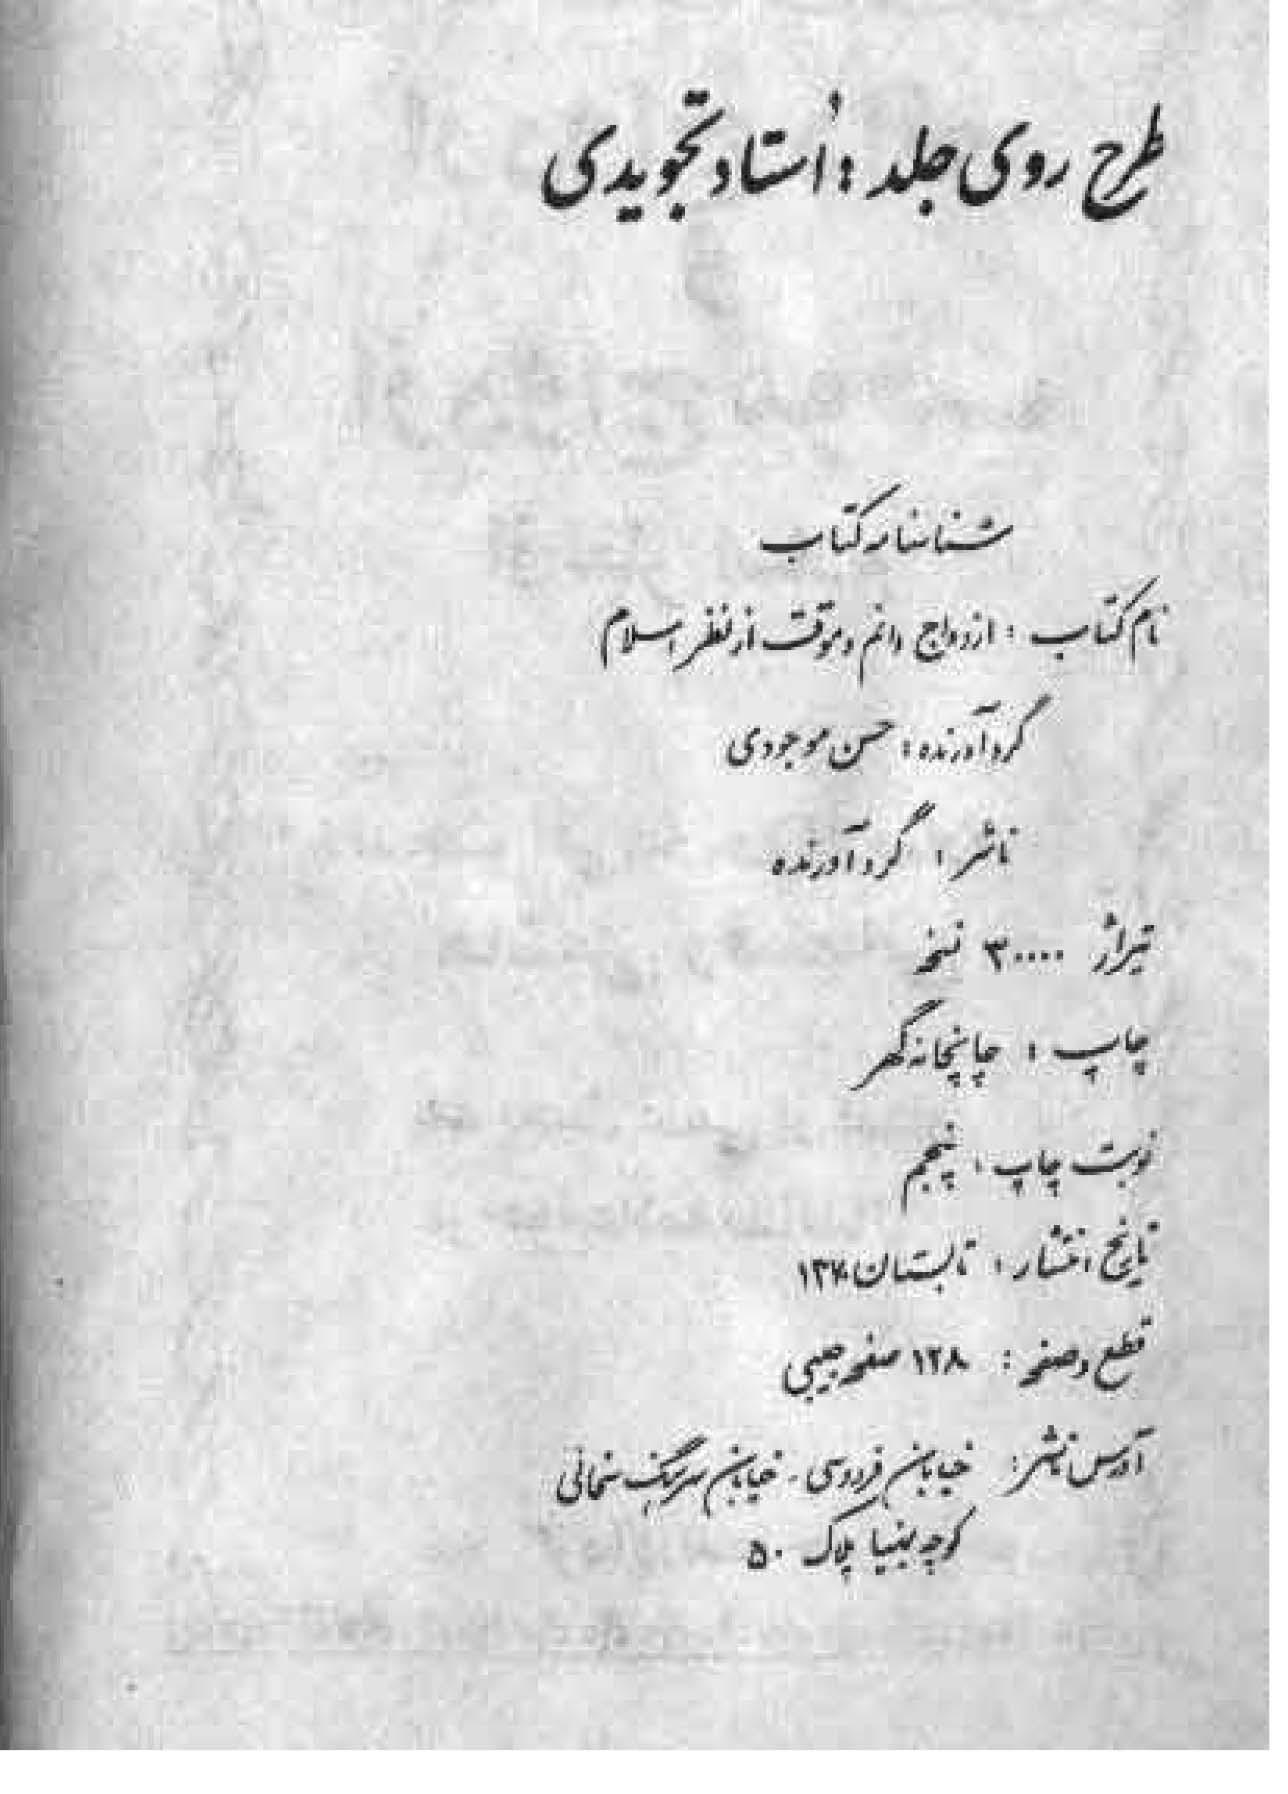 طرح روی جلد : اُستاد تجویدی
شناسنامه کتاب
نام کتاب : ازدواج دائم و موقت از نظر اسلام
گردآورنده : حسن موجودی
ناشر : گردآورنده
تیراژ ۳۰۰۰۰ نسخه
چاپ : چاپخانه گهر
نوبت چاپ : پنجم
تاریخ انتشار : تابستان ۱۳۷۰
قطع و صفحه : ۱۲۸ صفحه جیبی
آدرس ناشر : خیابان فردوسی - خیابان سرهنگ سخائی
کوچه بینا پلاک ۵۰